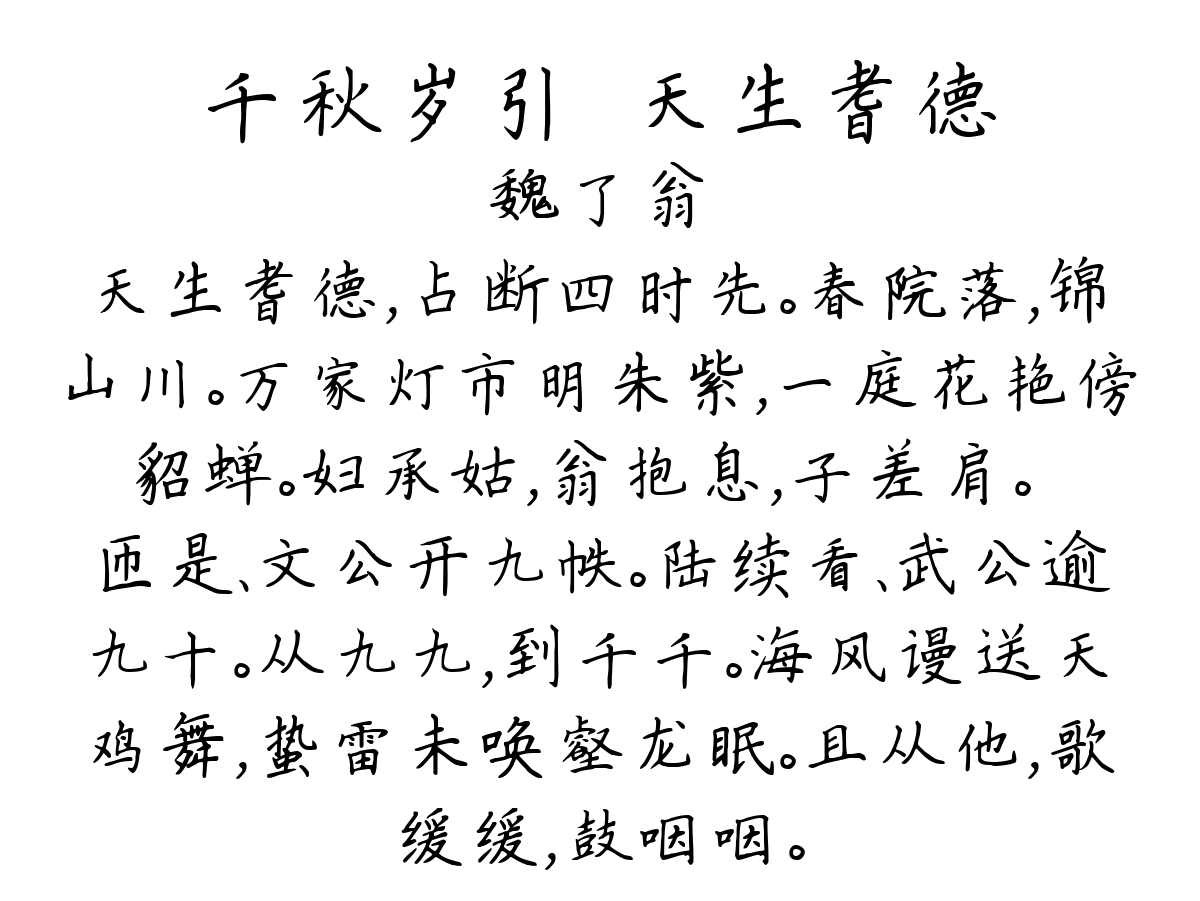 千秋岁引 天生耆德
魏了翁
天生耆德,占断四时先。春院落,锦
山川。万家灯市明朱紫,一庭花艳傍
貂蝉。妇承姑,翁抱息,子差肩。
匝是、文公开九帙。陆续看、武公逾
九十。从九九,到千千。海风谩送天
鸡舞,蛰雷未唤壑龙眠。且从他,歌
缓缓,鼓咽咽。